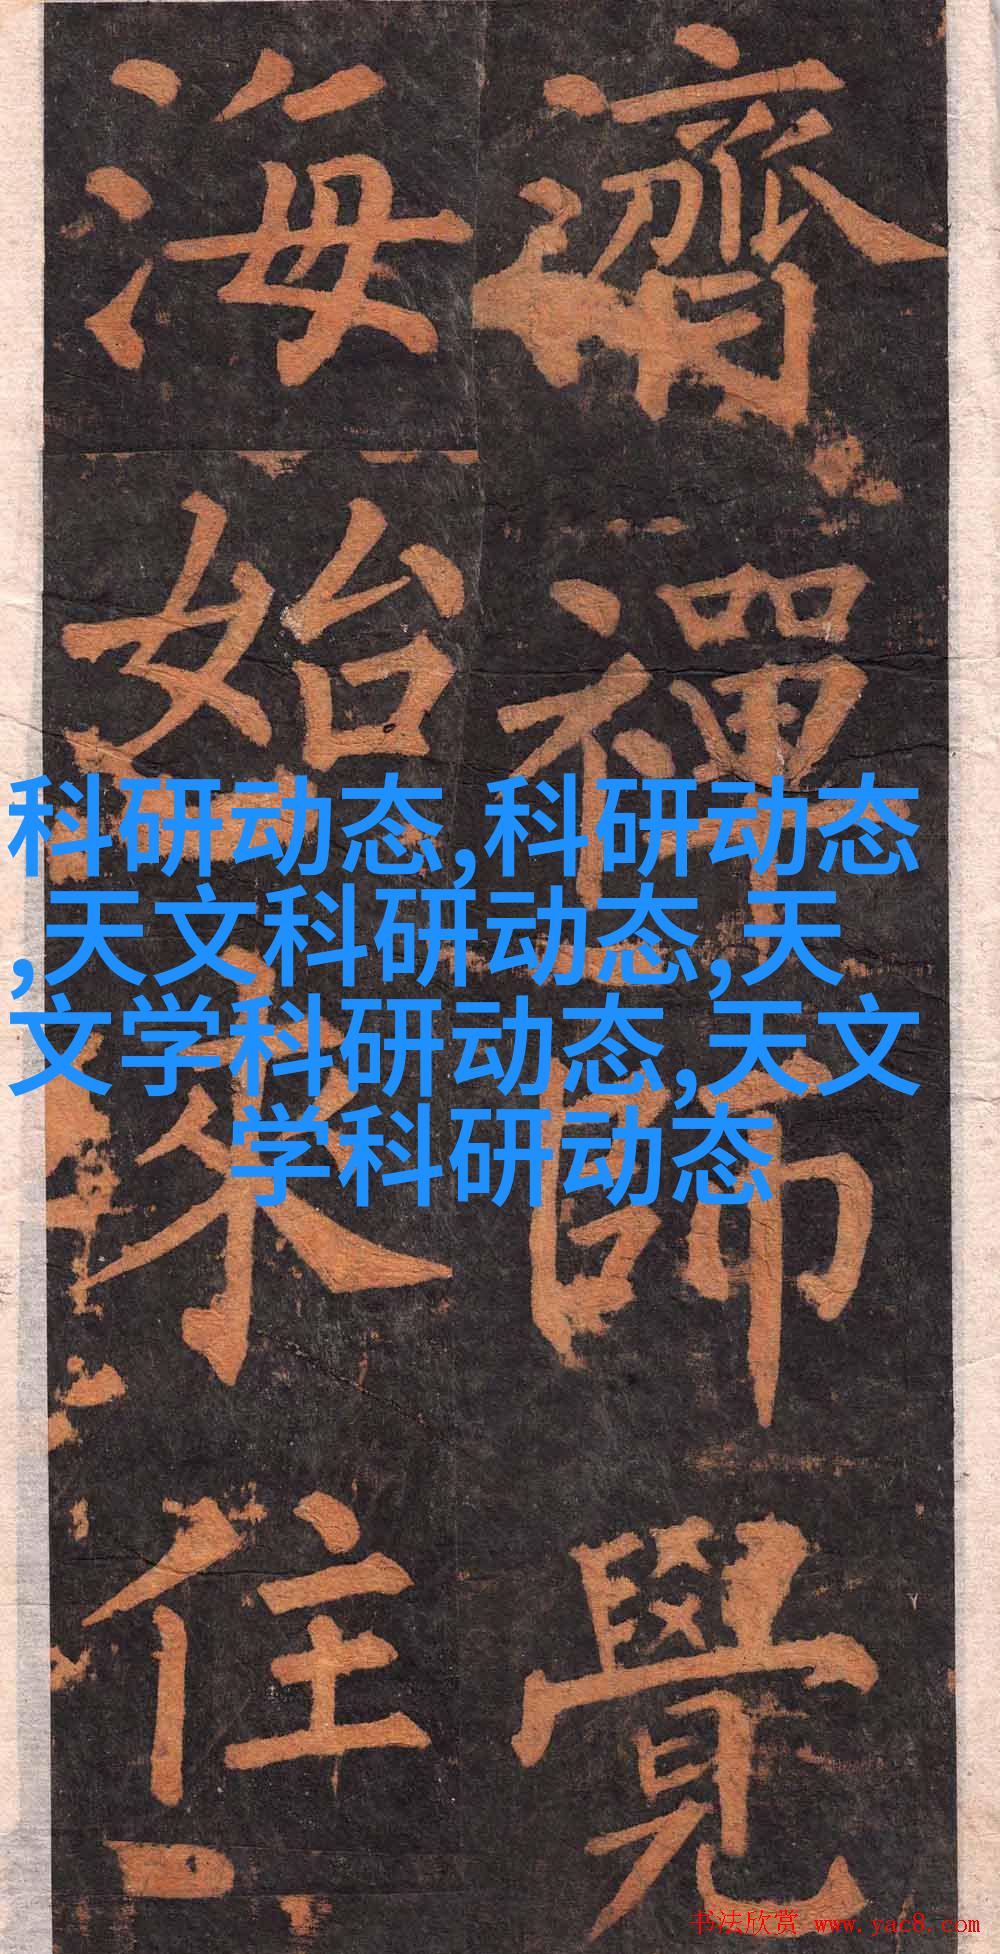 濟禪師覺
海始來住
科研动态,科研动态
,天文科研动态,天
文学科研动态,天文
学科研动态
书法欣赏 www.yac8.com